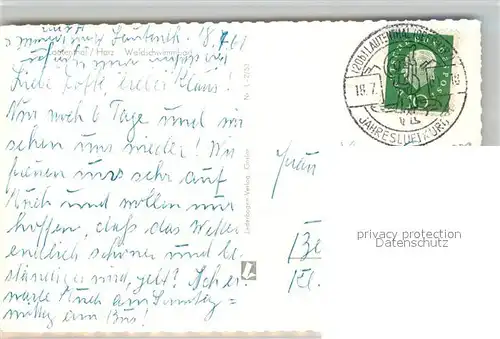 Lautenthal 18.7.61
Lautenthal / Harz Waldschwimmbad
Liebe Lotte, lieber Klaus!
Nur noch 6 Tage und wir
sehen uns wieder! Wir
freuen uns sehr auf
Euch und wollen nur
hoffen, daß das Wetter
endlich schöner und be-
ständiger wird, gelt? Ich er-
warte Euch am Sonntag =
mittag am Bus!
Nr. L-2251
Lederbogen-Verlag, Goslar
(20b) LAUTENTHAL
18.7.
JAHRESLUFTKURORT
10
Frau
Be
Kl.
privacy protection
Datenschutz